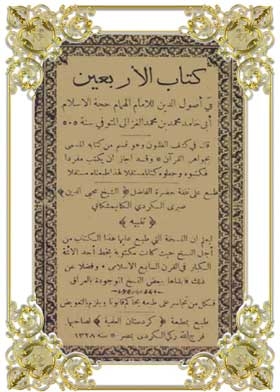 كتاب الأربعين
في أصول الدين للامام الهمام حجة الاسلام
أبى حامد محمد بن محمد الغزالى المتوفى سنة ٥٠٥
قال فى كشف الظنون وهو قسم من كتابه المسمى
بجواهر القرآن وقد اجاز ان يكتب مفردا
فكتبوه وجعلوه كتابا مستقلا
طبع على نفقة حضرة الفاضل ﴿ الشيخ محيي الدين ﴾
صبرى الكردى
﴿ تنبيه ﴾
ليعلم ان النسخة التى طبع عليها هذا الكتاب من
أصل النسخ حيث كانت مكتوبة بخط أحد الأئمة
الكبار فى القرن السابع الاسلامى، وفضلا عن
ذلك بعض النسخ الموجودة بالعراق
فكل من تجاسر على طبعه
طبع بمطبعة ﴿ كردستان العلمية ﴾ لصاحبها
فرج الله زكى الكردى بمصر سنة ١٣٢٨